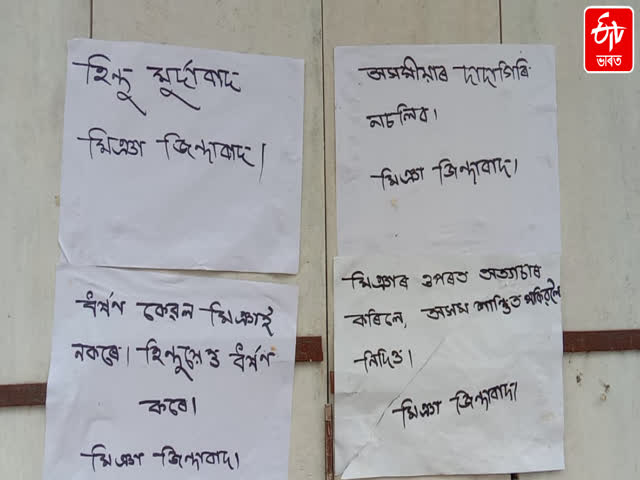 ভাৰত
হিন্দু মুৰ্দাবাদ
মিঞা জিন্দাবাদ।
অসমীয়াৰ দাদাগিৰি
নচলিব।
মিঞা জিন্দাবাদ।
ধৰ্ষণ কেৱল মিঞাই
নকৰে। হিন্দুয়েও ধৰ্ষণ
কৰে।
মিঞা জিন্দাবাদ।
মিঞাৰ ওপৰত অত্যাচাৰ
কৰিলে, অসম শান্তিত থাকিবলৈ
নিদিও।
মিঞা জিন্দাবাদ।